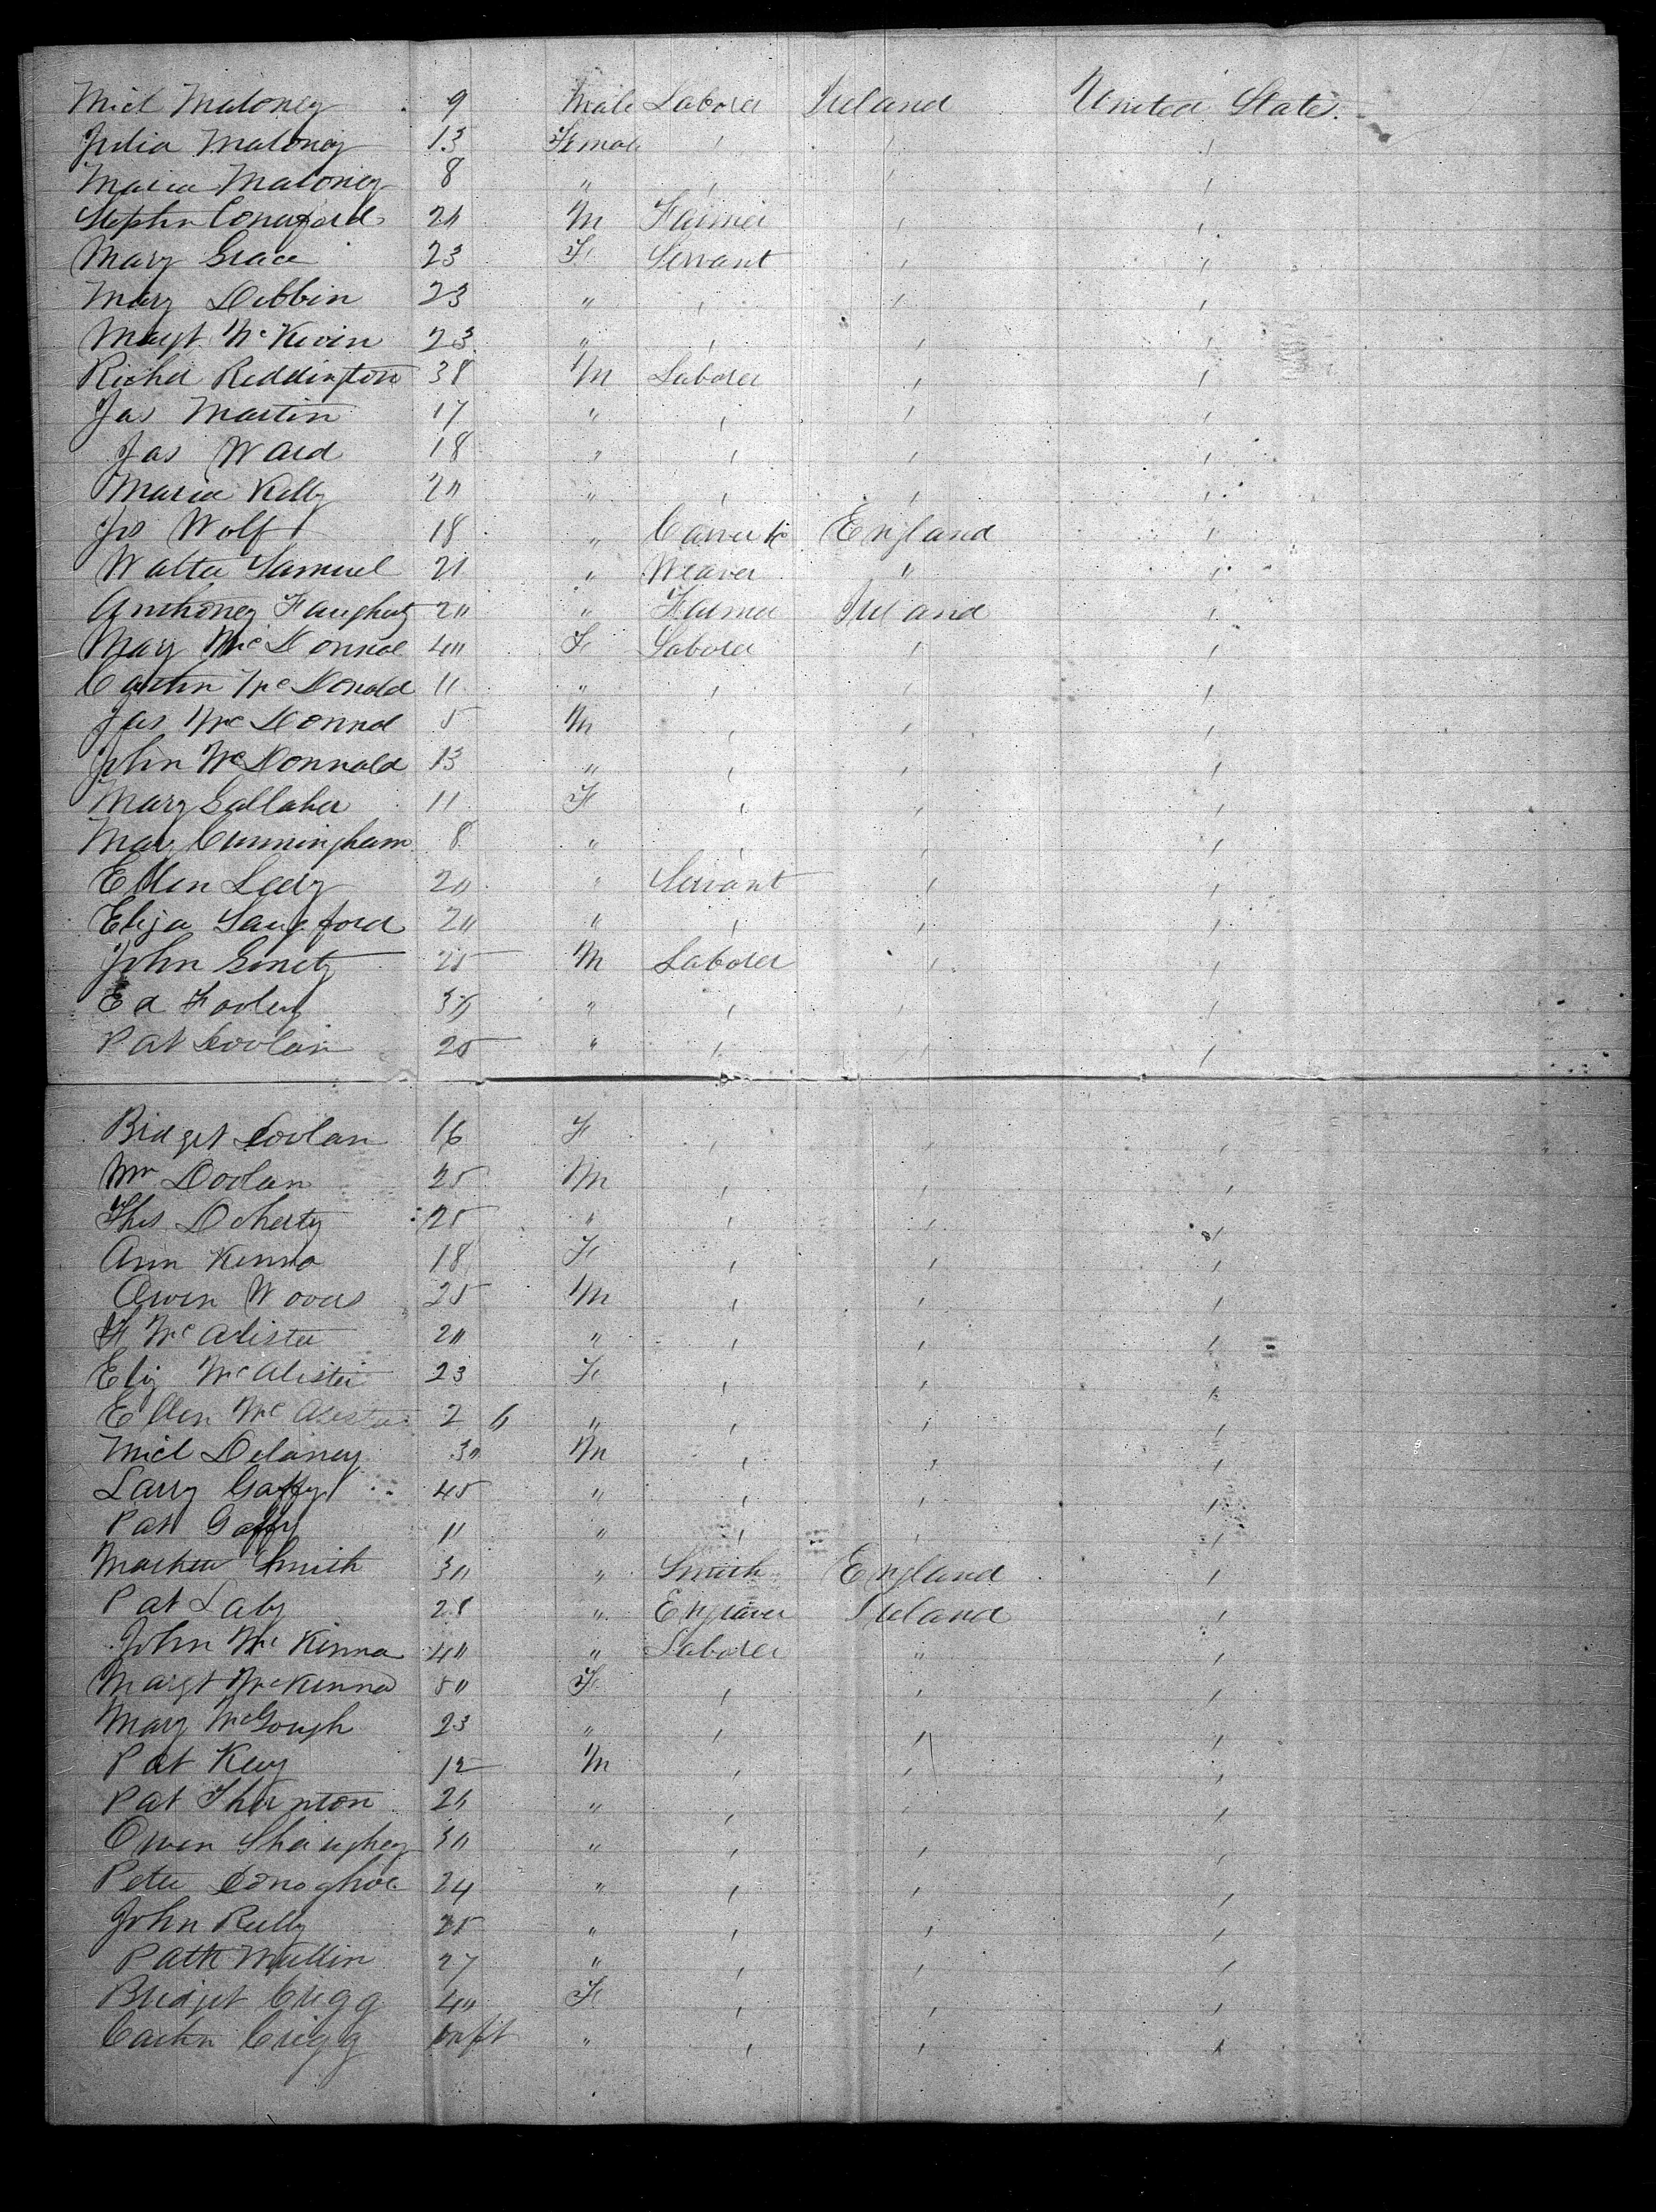 Micl Maloney 9 Male Laborer Ireland United States.
Julia Maloney 13 Female " " "
Maria Maloney 8 " " " "
Stephn Comerford 20 M Farmer " "
Mary Grace 23 F Servant " "
Mary Dobbin 23 " " " "
Margt McKevin 23 " " " "
Richd Reddington 38 M Laborer " "
Jas Martin 17 " " " "
Jas Ward 18 " " " "
Maria Kelly 20 " " " "
Js Wolf 18 " England "
Walter Samuel 21 " Weaver " "
Anthoney Faughey 20 " Farmer Ireland "
Mary McDonnal 40 F Laborer " "
Cathn McDonald 11 " " " "
Jas McDonnal 5 M " " "
John McDonnald 13 " " " "
Mary Gallaher 11 F " " "
Mary Cunningham 8 " " " "
Ellen Leedy 20 " Servant " "
Eliza Langford 20 " " " "
John Ginety 25 M Laborer " "
Ed Fooley 30 " " " "
Pat Doolan 25 " " " "
Bridget Doolan 16 F " " "
Wm Doolan 25 M " " "
Ths Doherty 25 " " " "
Ann Kenna 18 F " " "
Owen Woods 25 M " " "
F McAlister 20 " " " "
Eliz McAlister 23 F " " "
Ellen McAlister 2 6 " " " "
Micl Delaney 30 M " " "
Larry Gaffy 45 " " " "
Pat Gaffy 11 " " " "
Mathew Smith 30 " Smith England "
Pat Laby 28 " Engraver Ireland "
John McKinna 40 " Laborer " "
Margt McKenna 50 F " " "
Mary McGough 23 " " " "
Pat Keey 12 M " " "
Pat Thornton 20 " " " "
Owen Shaughey 30 " " " "
Peter Donoghoe 24 " " " "
John Reilly 25 " " " "
Patk Mullin 27 " " " "
Bridget Crigg 40 F " " "
Cathn Crigg Inft " " " "